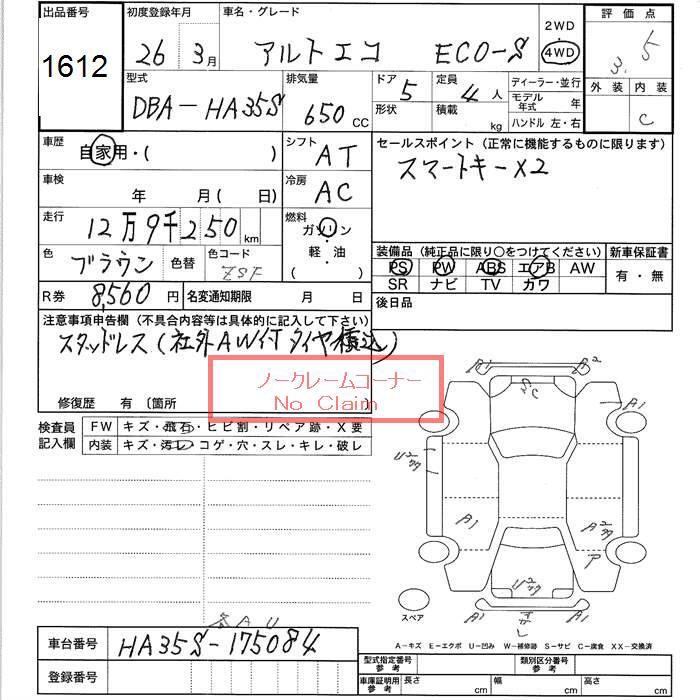 出品番号 初度登録年月 車名・グレード 2WD 評価点
1612 26年 3月 アルトエコ ECO-S 4WD 3.5
型式 排気量 ドア 定員 ディーラー・並行 外装 内装
DBA-HA35S 650CC 5 4人 モデル年式 年 C
形状 積載 kg ハンドル 左・右
車歴 自家用・( ) シフト AT セールスポイント(正常に機能するものに限ります)
スマートキーX2
車検 年 月( 日) 冷房 AC
走行 12万9千250km 燃料 ガソリン
軽油
( )
色 ブラウン 色替 色コード ZSF
装備品(純正品に限り○をつけてください) 新車保証書
PS PW ABS エアB AW 有・無
SR ナビ TV カワ
R券 8,560円 名変通知期限 月 日 後日品
注意事項申告欄(不具合内容等は具体的に記入して下さい)
スタッドレス(社外AW付タイヤ積込)
ノークレームコーナー
No Claim
修復歴 有〔箇所
検査員記入欄 FW キズ・飛石・ヒビ割・リペア跡・X要
内装 キズ・汚レ・コゲ・穴・スレ・キレ・破レ
A1 A2
SC
A1
A1
U2
A2
ア
U2
A1 A1
スペア
各AU
A-キズ E-エクボ U-凹み W-補修跡 S-サビ C-腐食 XX-交換済
車台番号 HA35S-175084
型式指定番号 参考 類別区分番号 参考
登録番号
車庫証明用 参考 長さ cm 幅 cm 高さ cm